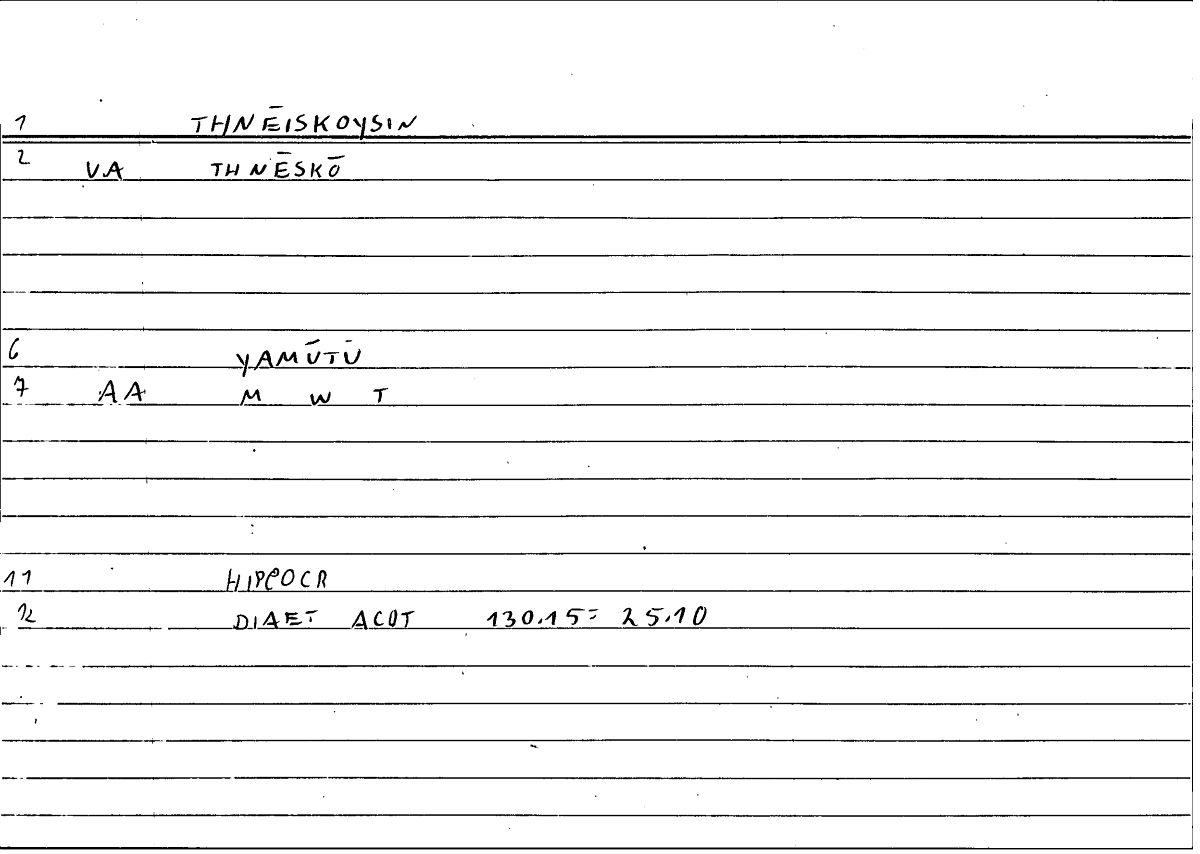 1 THNĒISKOYSIN
2 VA THNĒSKŌ
6 YAMŪTŪ
7 AA M W T
11 HIPPOCR
12 DIAET ACUT 130.15 = 25.10